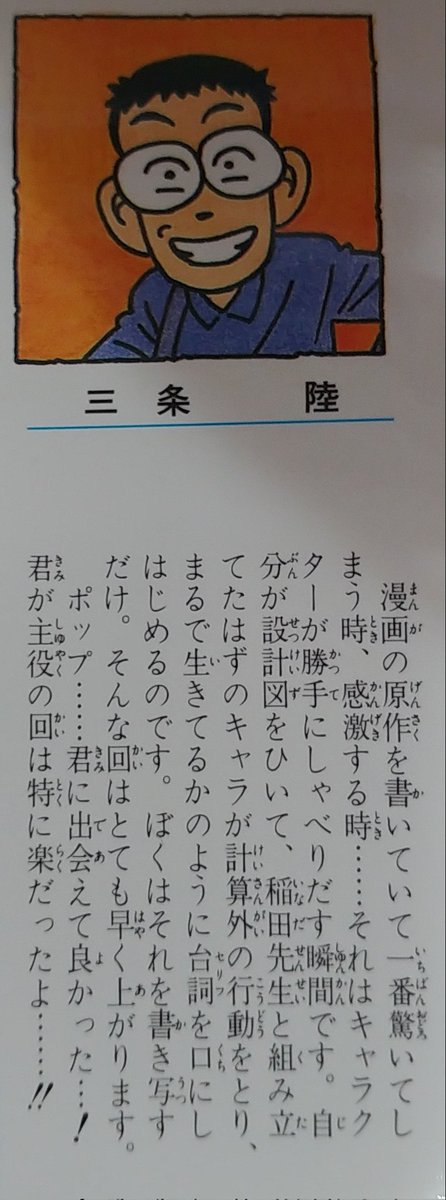 三条 陸
漫画の原作を書いていて一番驚いてし
まう時、感激する時……それはキャラク
ターが勝手にしゃべりだす瞬間です。自
分が設計図をひいて、稲田先生と組み立
てたはずのキャラが計算外の行動をとり、
まるで生きてるかのように台詞を口にし
はじめるのです。ぼくはそれを書き写す
だけ。そんな回はとても早く上がります。
ポップ……君に出会えて良かった…！
君が主役の回は特に楽だったよ……‼